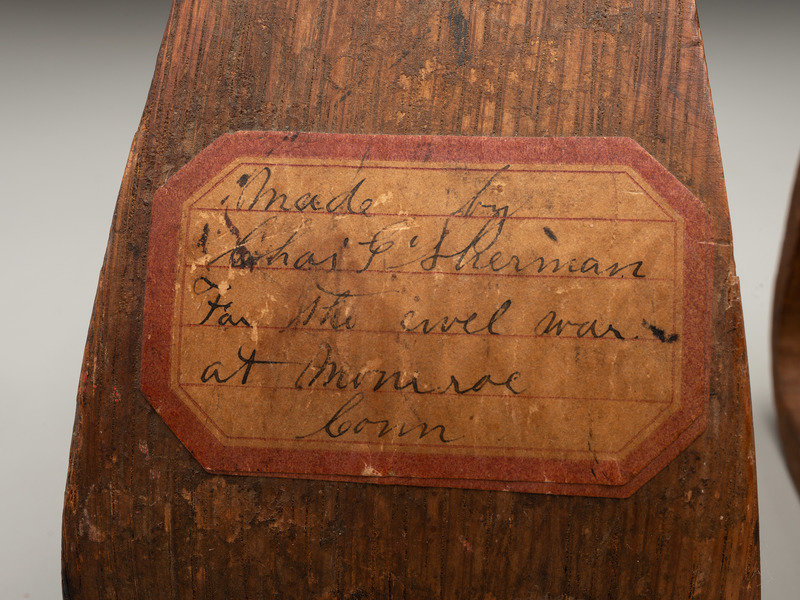 Made by
Chas E Sherman
For the civel war
at Monroe
Conn